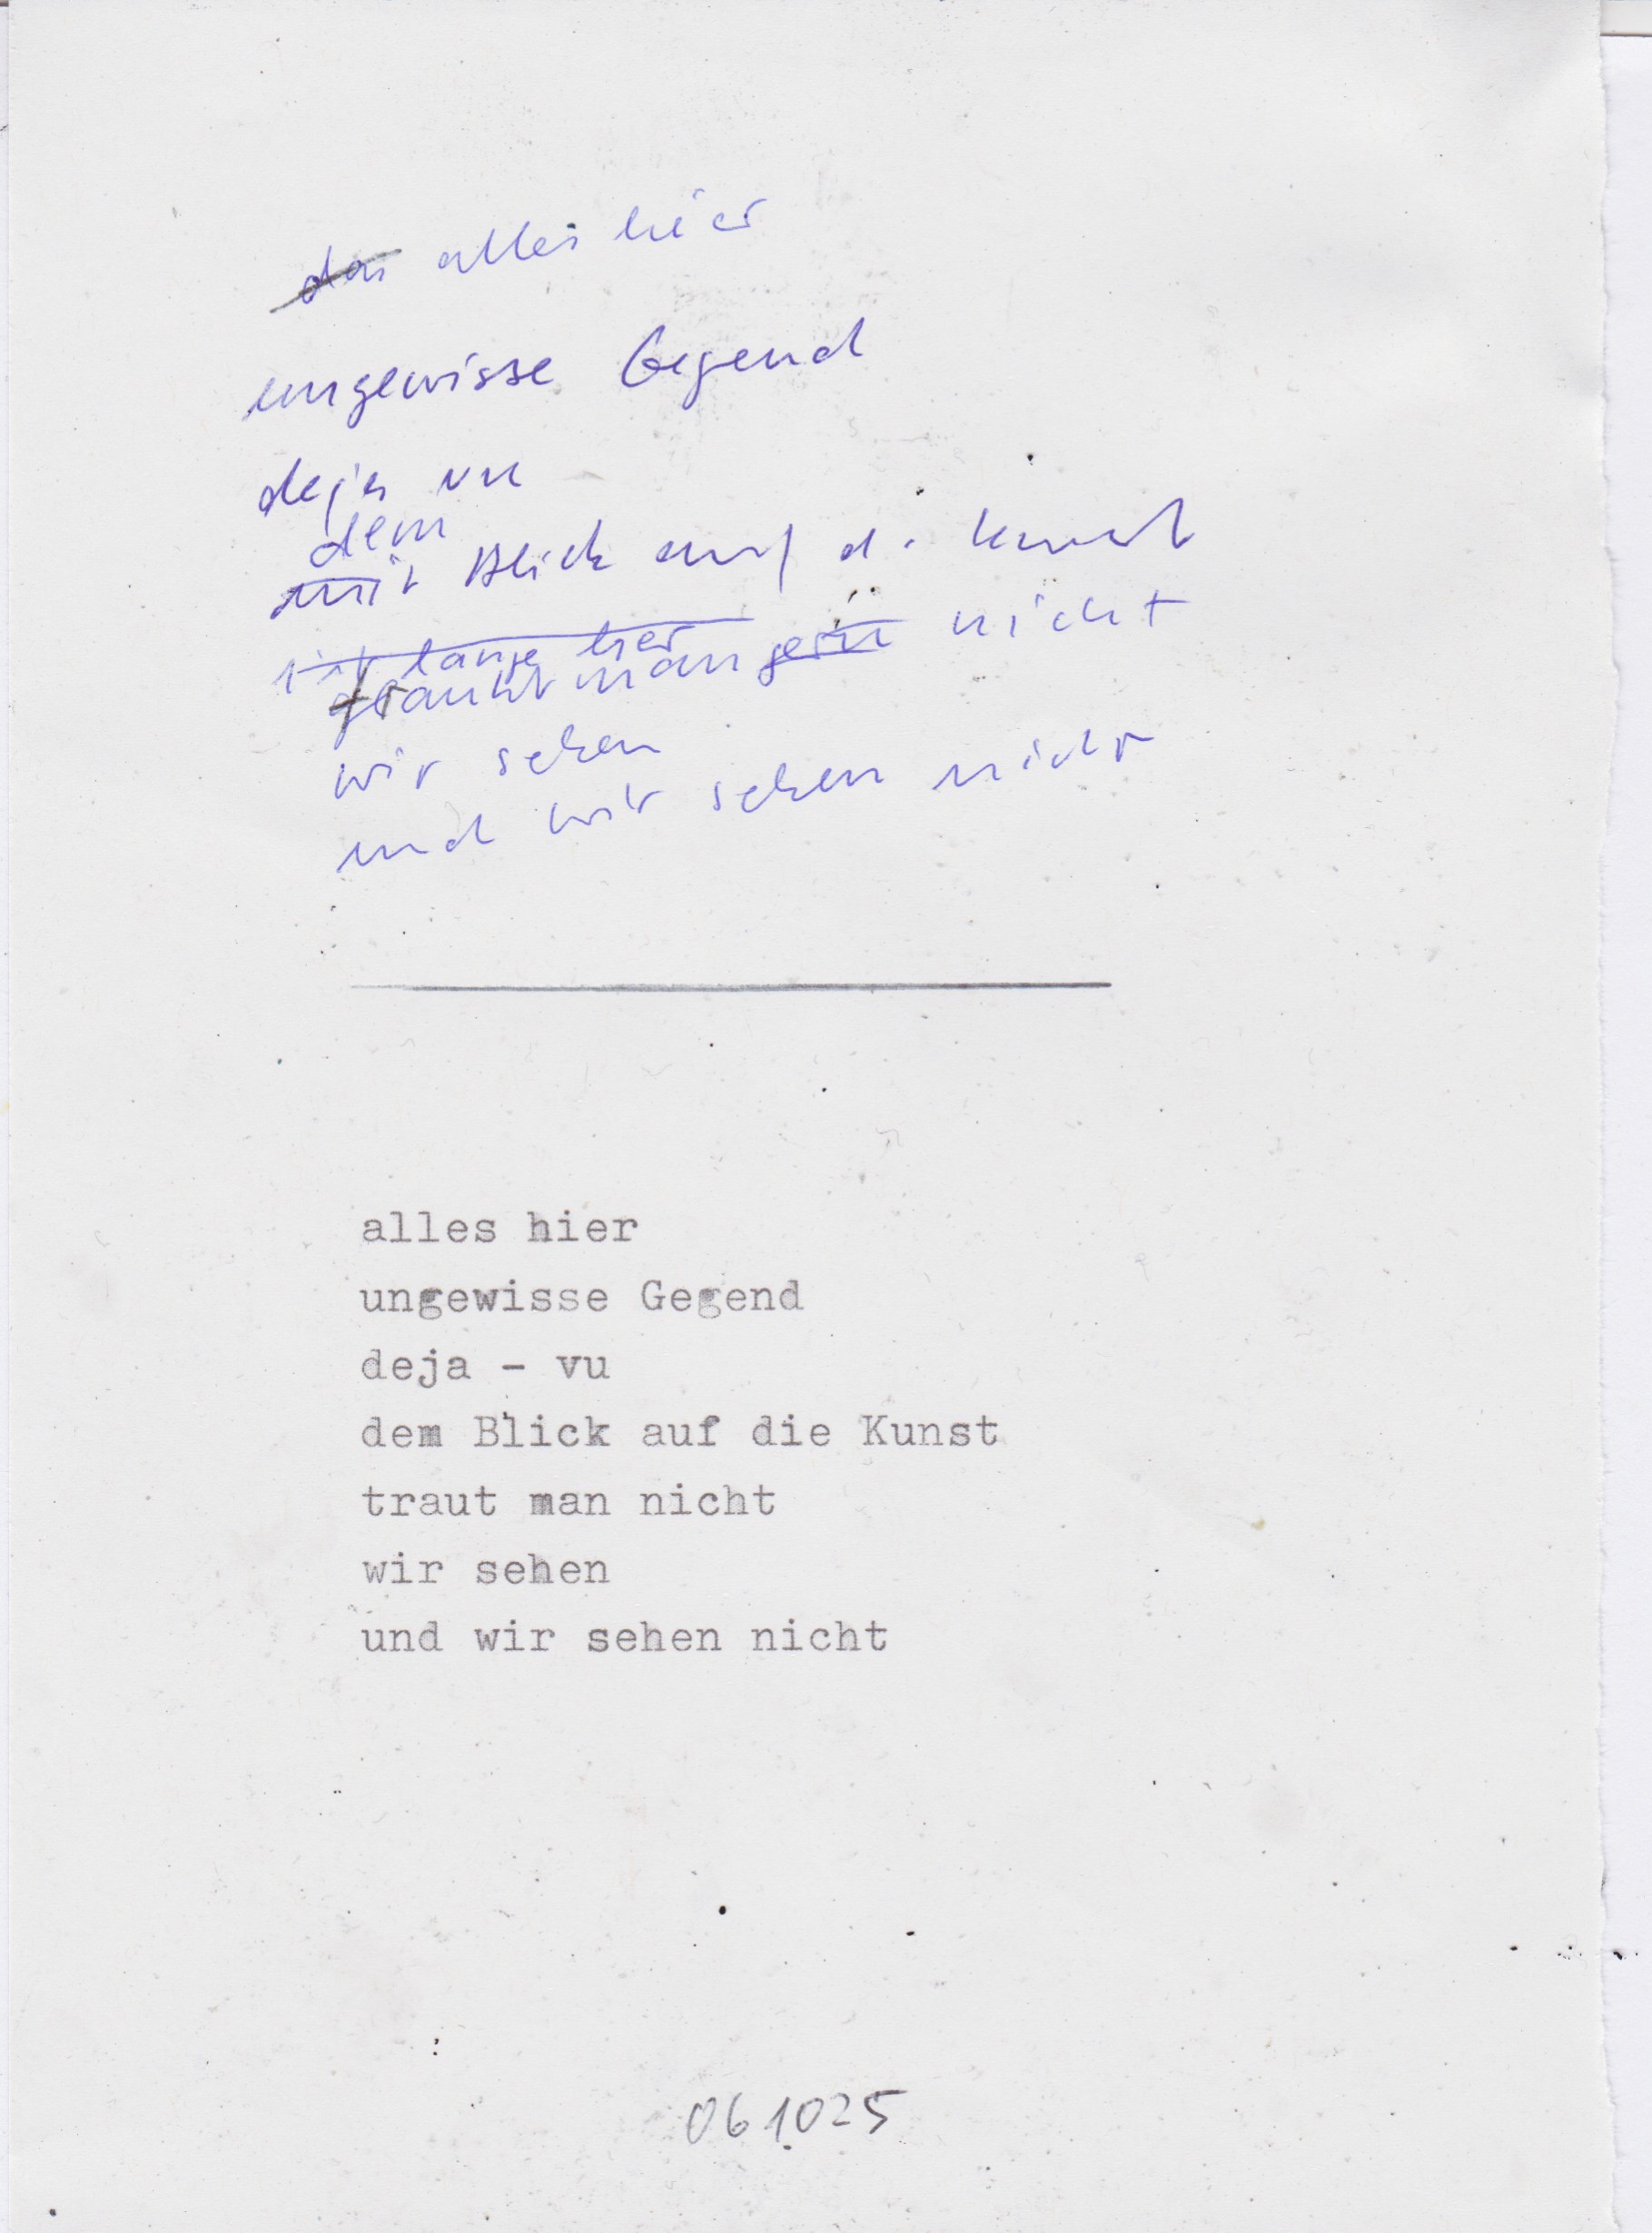 das alles hier
ungewisse Gegend
deja vu
dem
mit Blick auf d. Kunst
ist lange her
traut man gern nicht
wir sehen
und wir sehen nicht
alles hier
ungewisse Gegend
deja - vu
dem Blick auf die Kunst
traut man nicht
wir sehen
und wir sehen nicht
061025